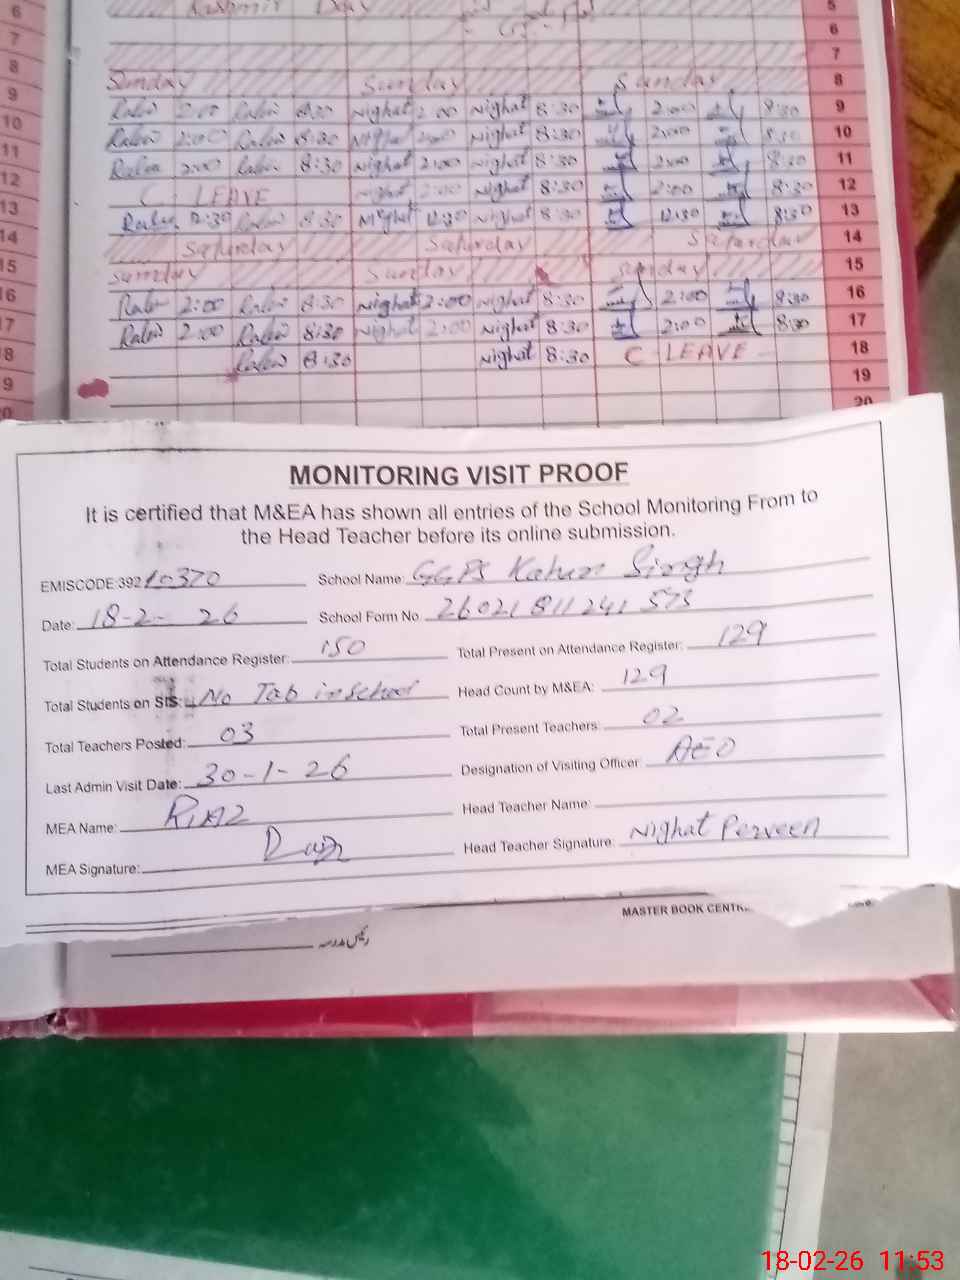 Kashmir Day
6 5
7 6
8 7
Sunday Sunday Sunday 8
9 Rabia 2:00 Rabia 8:30 Nighat 2:00 Nighat 8:30 2:00 8:30 9
10 Rabia 2:00 Rabia 8:30 Nighat 2:00 Nighat 8:30 2:00 8:30 10
11 Rabia 2:00 Rabia 8:30 Nighat 2:00 Nighat 8:30 2:00 8:30 11
12 C LEAVE Nighat 2:00 Nighat 8:30 2:00 8:30 12
13 Rabia 12:30 Rabia 8:30 Nighat 12:30 Nighat 8:30 12:30 8:30 13
14 Saturday Saturday Saturday 14
15 Sunday Sunday Sunday 15
16 Rabia 2:00 Rabia 8:30 Nighat 2:00 Nighat 8:30 2:00 8:30 16
17 Rabia 2:00 Rabia 8:30 Nighat 2:00 Nighat 8:30 2:00 8:30 17
18 Rabia 8:30 Nighat 8:30 C LEAVE 18
19 19
20 20
MONITORING VISIT PROOF
It is certified that M&EA has shown all entries of the School Monitoring From to
the Head Teacher before its online submission.
EMISCODE:392 10370 School Name: GGPS Singh
Date: 18-2-26 School Form No. 26021811241573
Total Students on Attendance Register: 150 Total Present on Attendance Register: 129
Total Students on SIS: No Tab in School Head Count by M&EA: 129
Total Teachers Posted: 03 Total Present Teachers: 02
Last Admin Visit Date: 30-1-26 Designation of Visiting Officer: AEO
MEA Name: RIAZ Head Teacher Name:
MEA Signature: Head Teacher Signature: Nighat Perveen
MASTER BOOK
رئیس مدرسہ
18-02-26 11:53